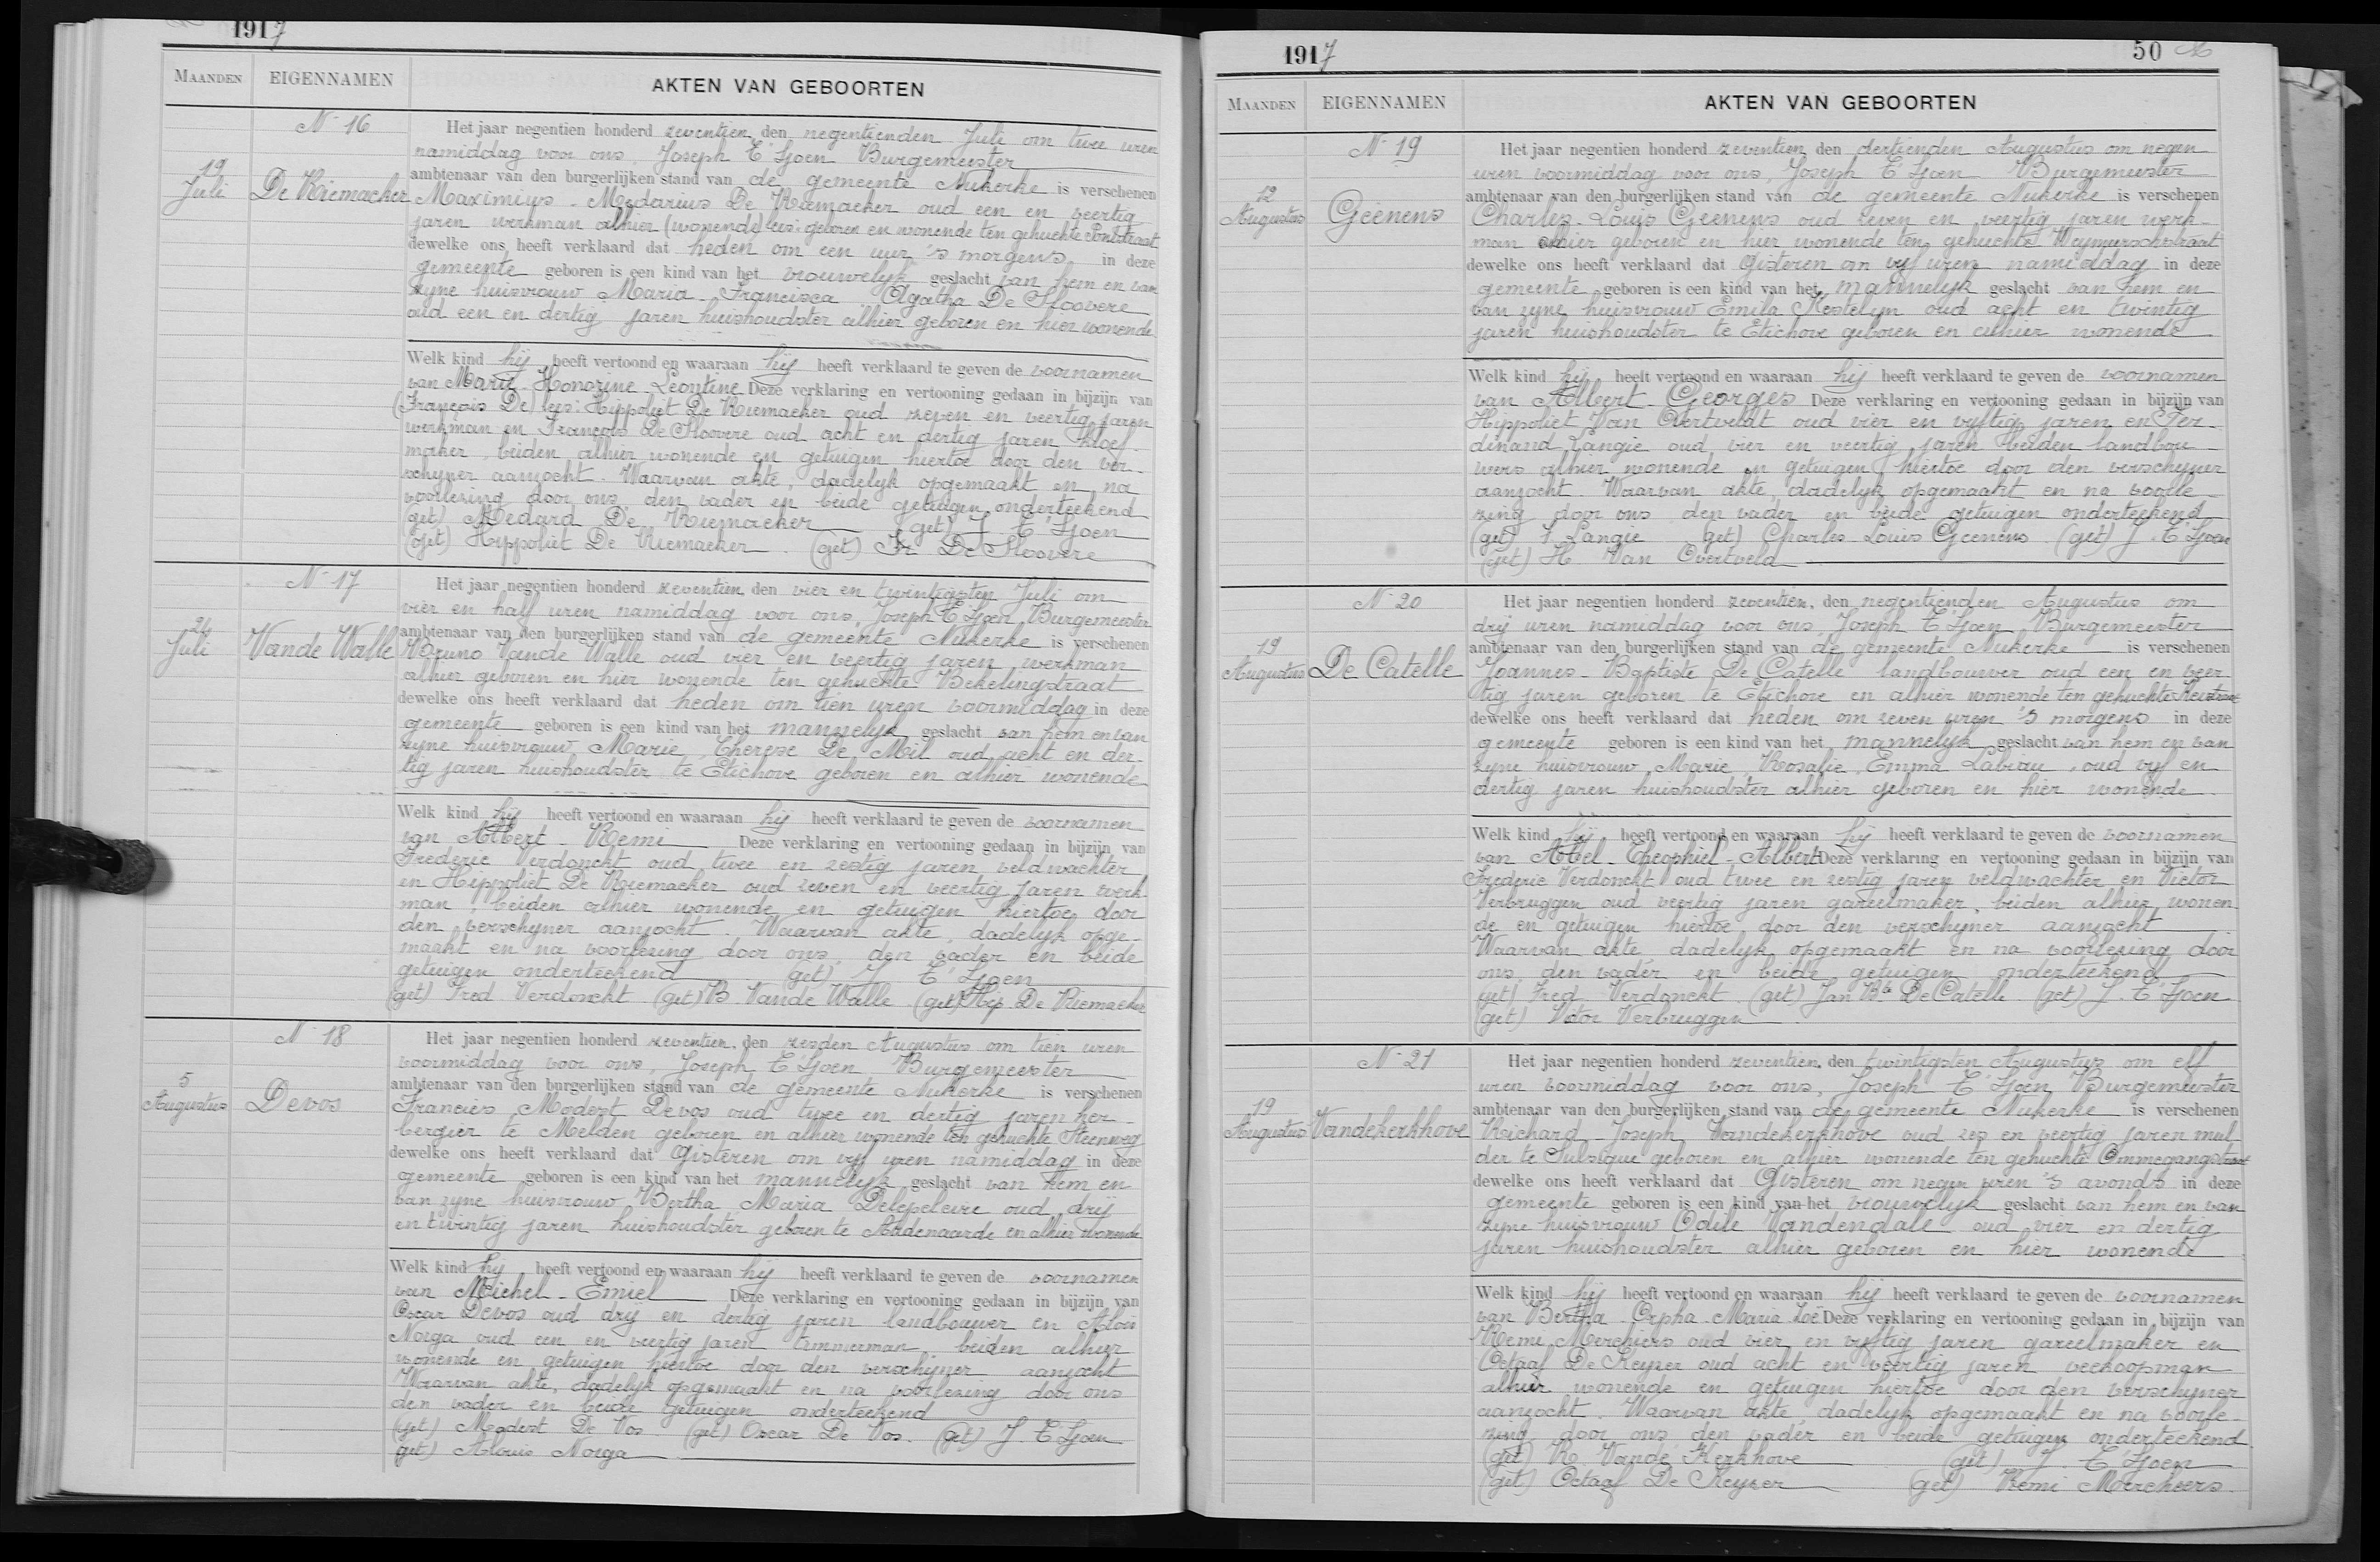 1917
MAANDEN EIGENNAMEN AKTEN VAN GEBOORTEN
N° 16
19
Juli
De Riemacker
Het jaar negentien honderd zeventien, den negentienden Juli om twee uren
namiddag voor ons, Joseph T'Sjoen Burgemeester
ambtenaar van den burgerlijken stand van de gemeente Nukerke is verschenen
Maximius - Medardus De Riemacker oud een en veertig
jaren werkman alhier (wonende) lees: geboren en wonende ten gehuchte Pontstraat
dewelke ons heeft verklaard dat heden om een uur 's morgens in deze
gemeente geboren is een kind van het vrouwelyk geslacht van hem en van
zyne huisvrouw Maria - Francisca - Agatha De Sloovere
oud een en dertig jaren huishoudster alhier geboren en hier wonende
Welk kind hij heeft vertoond en waaraan hij heeft verklaard te geven de voornamen
van Marie - Honorine - Leontine Deze verklaring en vertooning gedaan in bijzijn van
(François De) lees: Hippoliet De Riemaeker oud zeven en veertig jaren
werkman en François De Sloovere oud acht en dertig jaren kloef-
maker, beiden alhier wonende en getuigen hiertoe door den ver-
schyner aanzocht. Waarvan akte, dadelyk opgemaakt en na
voorlezing door ons, den vader en beide getuigen onderteekend
(get) Medard De Riemacker (get) J. T'Sjoen
(get) Hippoliet De Riemacker (get) Fr De Sloovere
N° 17
24
Juli
Vande Walle
Het jaar negentien honderd zeventien, den vier en twintigsten Juli om
vier en half uren namiddag voor ons, Joseph T'Sjoen Burgemeester
ambtenaar van den burgerlijken stand van de gemeente Nukerke is verschenen
Bruno Vande Walle oud vier en veertig jaren werkman
alhier geboren en hier wonende ten gehuchte Bekelingstraat
dewelke ons heeft verklaard dat heden om tien uren voormiddag in deze
gemeente geboren is een kind van het mannelyk geslacht van hem en van
zyne huisvrouw Marie, Therese De Mil oud acht en der-
tig jaren huishoudster te Etichove geboren en alhier wonende
Welk kind hij heeft vertoond en waaraan hij heeft verklaard te geven de voornamen
van Albert - Remi Deze verklaring en vertooning gedaan in bijzijn van
Frederic Verdonckt oud twee en zestig jaren veldwachter
en Hippoliet De Riemacker oud zeven en veertig jaren werk-
man, beiden alhier wonende en getuigen hiertoe door
den verschyner aanzocht. Waarvan akte, dadelyk opge-
maakt en na voorlezing door ons, den vader en beide
getuigen onderteekend (get) J T'Sjoen
(get) Fred Verdonckt (get) B. Vande Walle (get) Hip. De Riemacker
N° 18
5
Augustus
Devos
Het jaar negentien honderd zeventien, den zesden Augustus om tien uren
voormiddag voor ons, Joseph T'Sjoen, Burgemeester
ambtenaar van den burgerlijken stand van de gemeente Nukerke is verschenen
Francies Modest Devos oud twee en dertig jaren her-
bergier te Melden geboren en alhier wonende ten gehuchte Steenweg
dewelke ons heeft verklaard dat Gisteren om vyf uren namiddag in deze
gemeente geboren is een kind van het mannelyk geslacht van hem en
van zyne huisvrouw Bertha Maria Delepeleire oud drij
en twintig jaren huishoudster geboren te Audenaarde en alhier wonende
Welk kind hij heeft vertoond en waaraan hij heeft verklaard te geven de voornamen
van Michel - Emiel Deze verklaring en vertooning gedaan in bijzijn van
Oscar Devos oud drij en dertig jaren landbouwer en Alois
Norga oud een en veertig jaren timmerman, beiden alhier
wonende en getuigen hiertoe door den verschijner aanzocht
Waarvan akte, dadelyk opgemaakt en na voorlezing door ons
den vader en beide getuigen onderteekend
(get) Modest De Vos. (get) Oscar De Vos. (get) J. T'Sjoen
(get) Alouis Norga
1917 50
MAANDEN EIGENNAMEN AKTEN VAN GEBOORTEN
N° 19
12
Augustus
Geenens
Het jaar negentien honderd zeventien, den dertienden Augustus om negen
uren voormiddag voor ons, Joseph T'Sjoen Burgemeester
ambtenaar van den burgerlijken stand van de gemeente Nukerke is verschenen
Charles - Louis Geenens oud zeven en veertig jaren werk-
man alhier geboren en hier wonende ten gehuchte Weymeerschstraat
dewelke ons heeft verklaard dat Gisteren om vyf uren namiddag in deze
gemeente geboren is een kind van het mannelyk geslacht van hem en
van zyne huisvrouw Emila Kestelyn oud acht en twintig
jaren huishoudster te Etichove geboren en alhier wonende
Welk kind hij heeft vertoond en waaraan hij heeft verklaard te geven de voornamen
van Albert - Georges Deze verklaring en vertooning gedaan in bijzijn van
Hippoliet Van Overtveldt oud vier en vyftig jaren en Fer-
dinand Langie oud vier en veertig jaren beiden landbou-
wers alhier wonende en getuigen hiertoe door den verschyner
aanzocht. Waarvan akte, dadelyk opgemaakt en na voorle-
zing door ons den vader en beide getuigen onderteekend
(get) f. Langie (get) Charles Louis Geenens (get) J. T'Sjoen
(get) H Van Overtveld
N° 20
19
Augustus
De Catelle
Het jaar negentien honderd zeventien, den negentienden Augustus om
drij uren namiddag voor ons, Joseph T'Sjoen Burgemeester
ambtenaar van den burgerlijken stand van de gemeente Nukerke is verschenen
Joannes - Baptiste De Catelle landbouwer oud een en veer-
tig jaren geboren te Etichove en alhier wonende ten gehuchte
dewelke ons heeft verklaard dat heden om zeven uren 's morgens in deze
gemeente geboren is een kind van het mannelyk geslacht van hem en van
zyne huisvrouw Marie, Rosalie, Emma Labiau, oud vyf en
dertig jaren huishoudster alhier geboren en hier wonende.
Welk kind hij heeft vertoond en waaraan hij heeft verklaard te geven de voornamen
van Abel - Theophiel - Albert Deze verklaring en vertooning gedaan in bijzijn van
Frederic Verdonckt oud twee en zestig jaren veldwachter en Victor
Verbruggen oud veertig jaren gareelmaker, beiden alhier wonen-
de en getuigen hiertoe door den verschijner aanzocht
Waarvan akte, dadelyk opgemaakt en na voorlezing door
ons, den vader en beide getuigen onderteekend
(get) Fred. Verdonckt. (get) Jan Bte De Catelle (get) J. T'Sjoen
(get) Victor Verbruggen
N° 21
19
Augustus
Vandekerkhove
Het jaar negentien honderd zeventien, den twintigsten Augustus om elf
uren voormiddag voor ons, Joseph T'Sjoen Burgemeester
ambtenaar van den burgerlijken stand van de gemeente Nukerke is verschenen
Richard - Joseph Vandekerkhove oud zes en veertig jaren mul-
der te Sulsique geboren en alhier wonende ten gehuchte Ommegangstraat
dewelke ons heeft verklaard dat Gisteren om negen uren 's avonds in deze
gemeente geboren is een kind van het vrouwelyk geslacht van hem en van
zyne huisvrouw Odile Vandendaele oud vier en dertig
jaren huishoudster alhier geboren en hier wonende
Welk kind hij heeft vertoond en waaraan hij heeft verklaard te geven de voornamen
van Bertha - Orpha - Maria Zoë Deze verklaring en vertooning gedaan in bijzijn van
Remi Merchiers oud vier en vyftig jaren gareelmaker en
Octaaf De Keyzer oud acht en veertig jaren veekoopman
alhier wonende en getuigen hiertoe door den verschyner
aanzocht. Waarvan akte, dadelyk opgemaakt en na voorle-
zing door ons den vader en beide getuigen onderteekend
(get) R. Vande Kerkhove (get) J. T'Sjoen
(get) Octaaf De Keyzer (get) Remi Merchiers